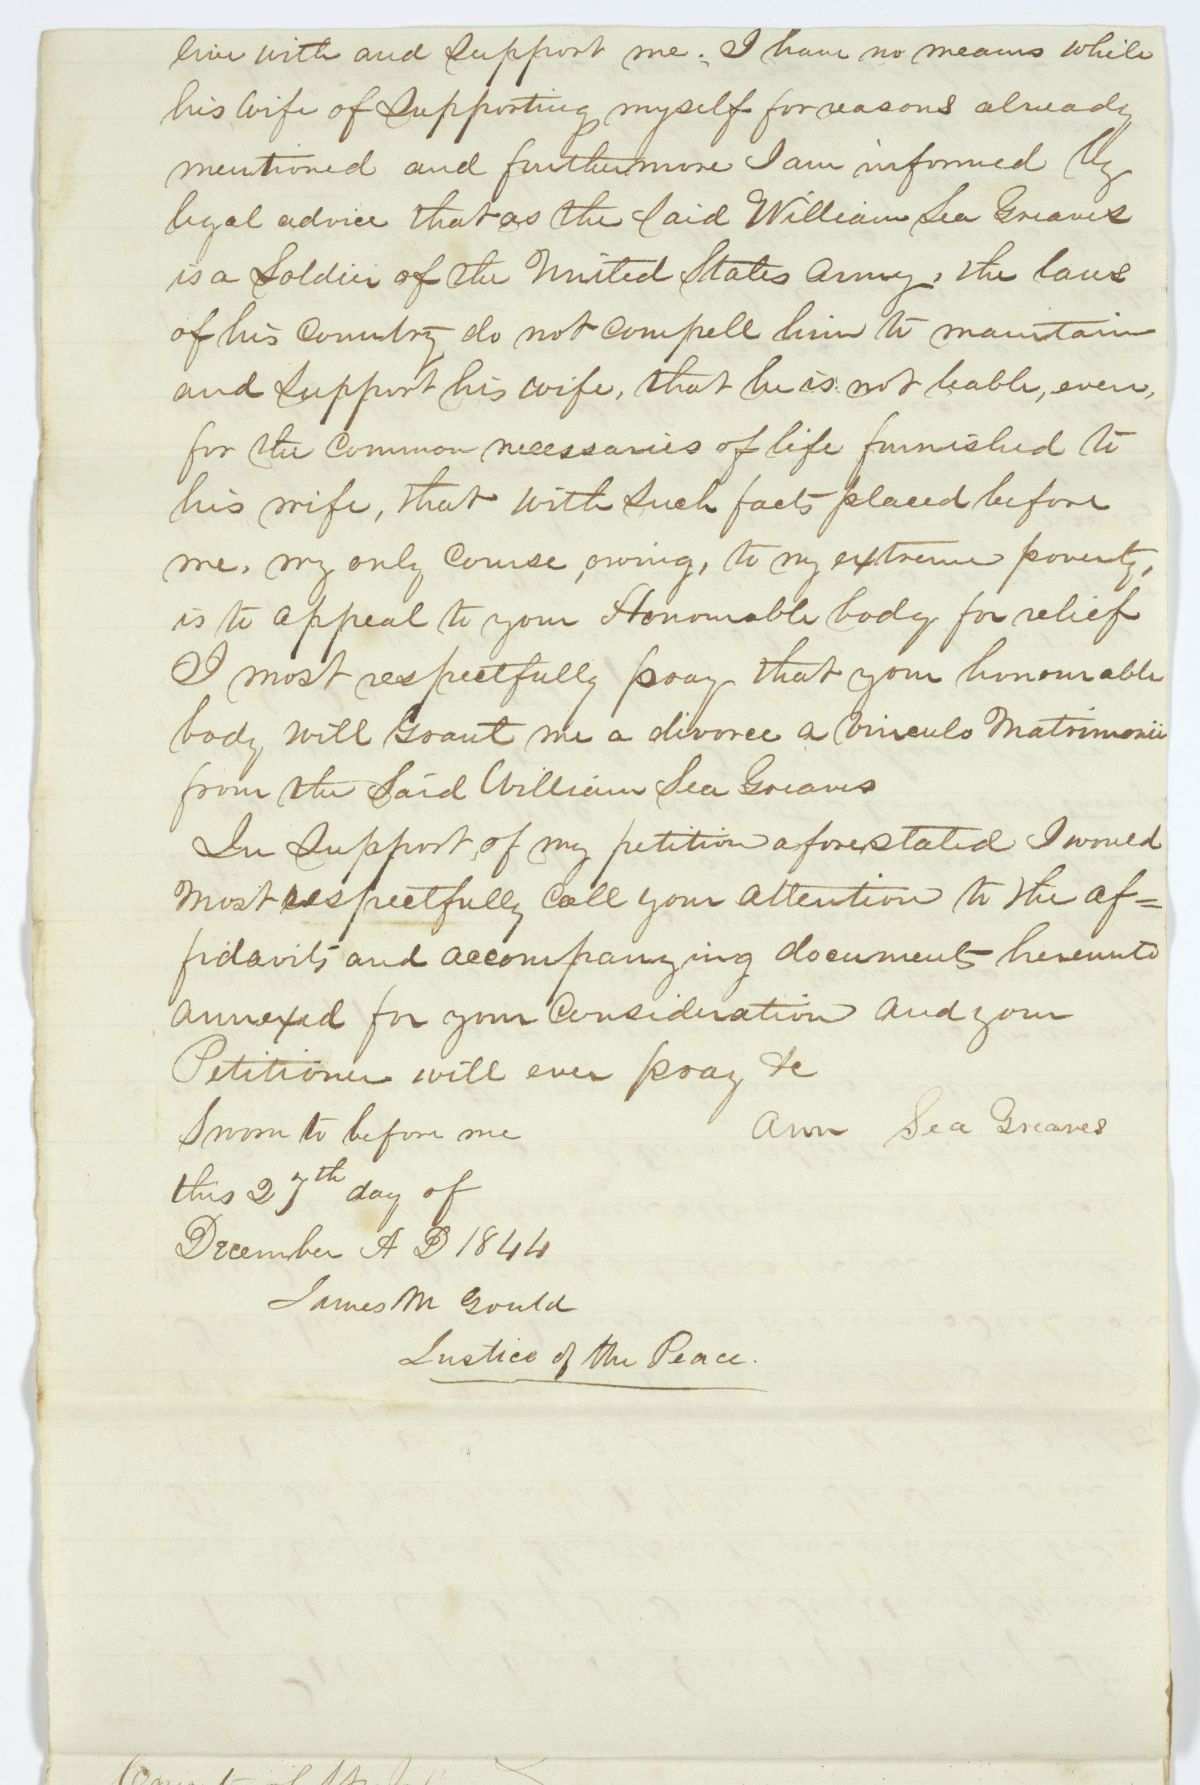 live with and Support me; I have no means while
his Wife of Supporting myself for reasons already
mentioned and furthermore I am informed by
legal advice that as the Said William Sea Greaves
is a Soldier of the United States Army, the laws
of his Country do not compell him to maintain
and Support his wife, that he is not leable, even,
for the Common necessaries of life furnished to
his wife, that with Such facts placed before
me, my only Course, owing, to my extreme poverty,
is to appeal to your Honourable body for relief
I most respectfully pray that your honourable
body will Grant me a divorce a Vinculo Matrimonii
from the Said William Sea Greaves
In Support of my petition aforestated I would
Most respectfully call your attention to the af=
fidavits and accompanying documents hereunto
annexed for your Consideration and your
Petitioner will ever pray &c
Sworn to before me Ann Sea Greaves
this 27th day of
December A D 1844
James M Gould
Justice of the Peace.